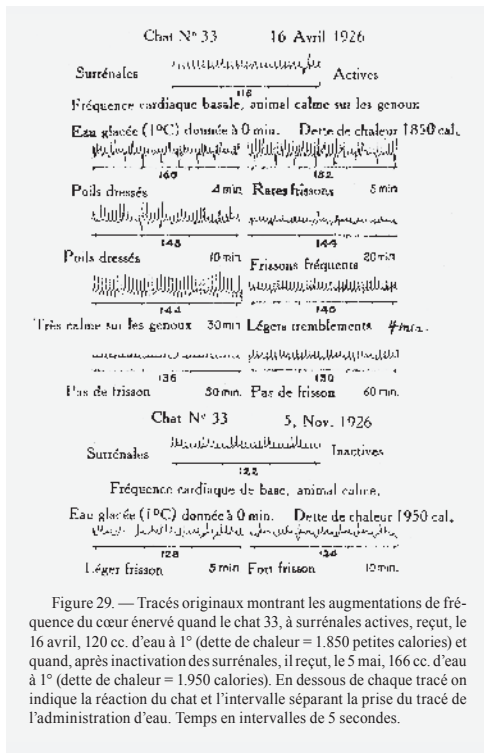 Chat Nº 33 16 Avril 1926
Surrénales Actives
118
Fréquence cardiaque basale, animal calme sur les genoux
Eau glacée (1ºC) donnée à 0 min. Dette de chaleur 1850 cal.
160 152
Poils dressés 4 min. Rares frissons 5 min
148 144
Poils dressés 10 min Frissons fréquents 20 min
144 140
Très calme sur les genoux 30 min Légers tremblements 4 min.
136 130
Pas de frisson 50 min. Pas de frisson 60 min.
Chat Nº 33 5, Nov. 1926
Surrénales Inactives
122
Fréquence cardiaque de base, animal calme.
Eau glacée (1ºC) donnée à 0 min. Dette de chaleur 1950 cal.
128 134
Léger frisson 5 min Fort frisson 10 min.
Figure 29. — Tracés originaux montrant les augmentations de fré-
quence du cœur énervé quand le chat 33, à surrénales actives, reçut, le
16 avril, 120 cc. d'eau à 1° (dette de chaleur = 1.850 petites calories) et
quand, après inactivation des surrénales, il reçut, le 5 mai, 166 cc. d'eau
à 1° (dette de chaleur = 1.950 calories). En dessous de chaque tracé on
indique la réaction du chat et l'intervalle séparant la prise du tracé de
l'administration d'eau. Temps en intervalles de 5 secondes.